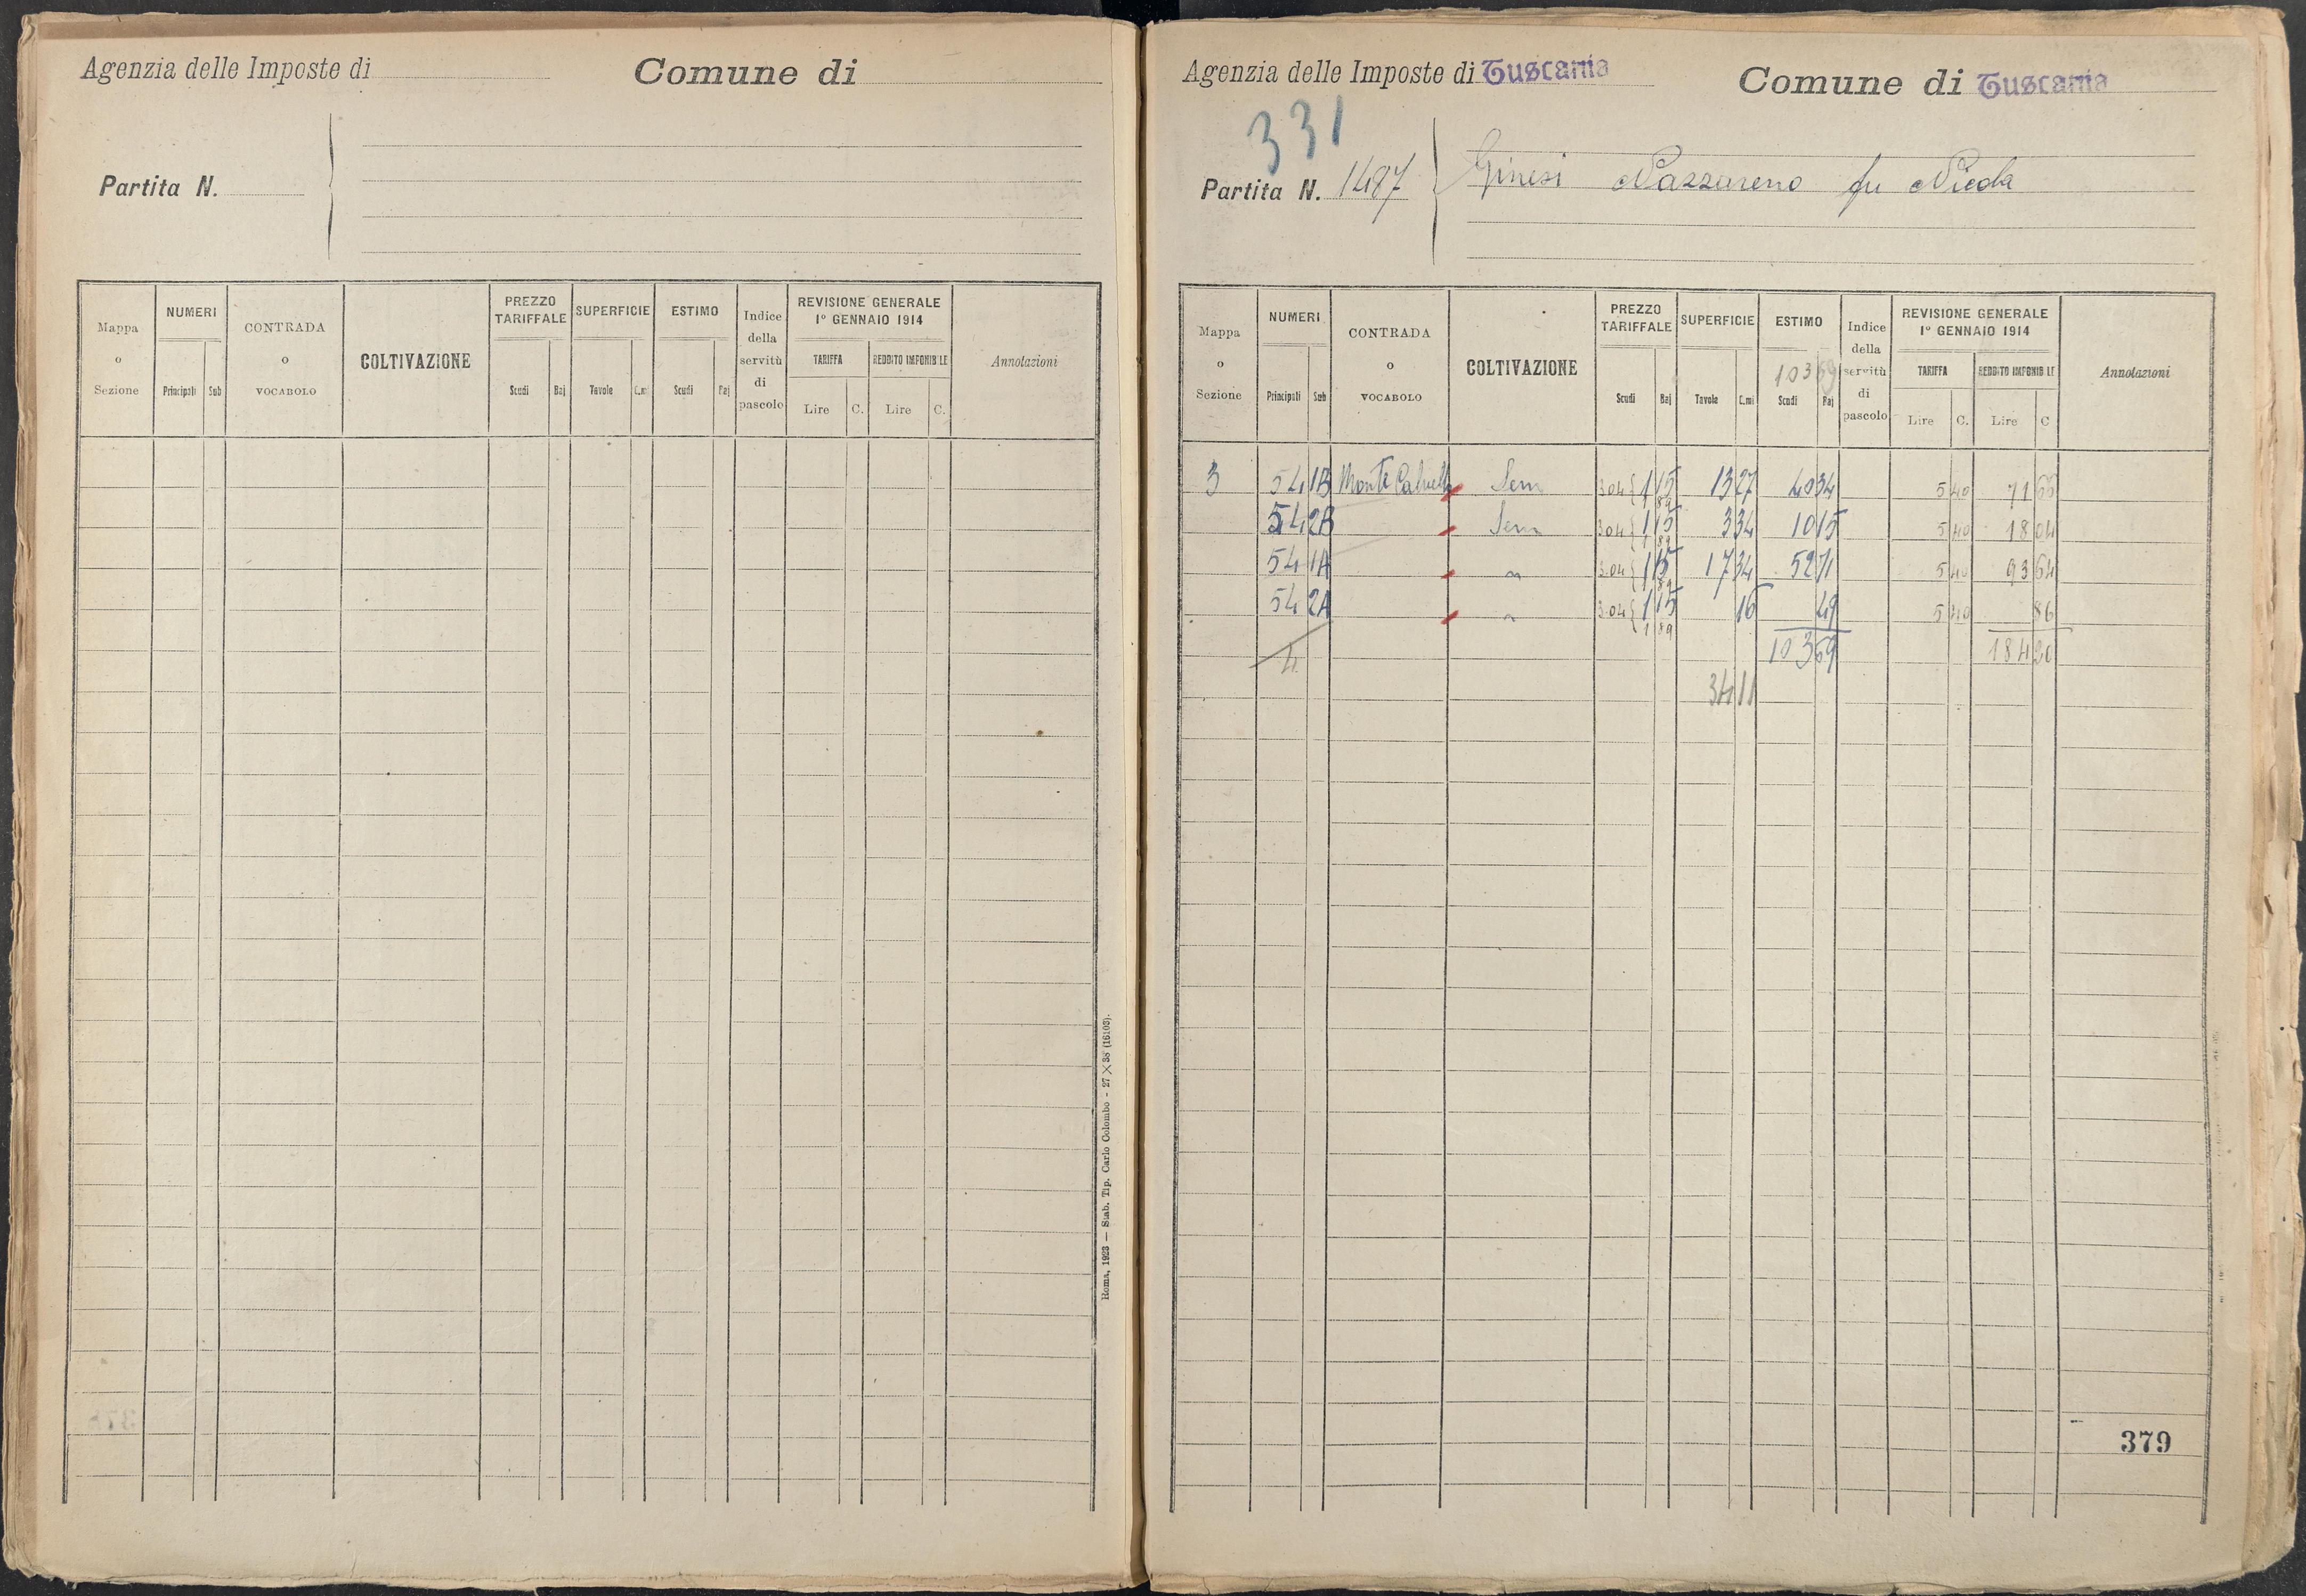 Agenzia delle Imposte di
Comune di
Partita N.
Mappa o Sezione
NUMERI
Principali Sub
CONTRADA o VOCABOLO
COLTIVAZIONE
PREZZO TARIFFALE
Scudi Baj
SUPERFICIE
Tavole C.mi
ESTIMO
Scudi Baj
Indice della servitù di pascolo
REVISIONE GENERALE
1º GENNAIO 1914
TARIFFA
REDDITO IMPONIBILE
Lire C. Lire C.
Annotazioni
Roma, 1923 — Stab. Tip. Carlo Colombo - 27 × 38 (16103).
Agenzia delle Imposte di Tuscania
Comune di Tuscania
331
Partita N. 1487
Ginesi Nazzareno fu Nicola
Mappa o Sezione
NUMERI
Principali Sub
CONTRADA o VOCABOLO
COLTIVAZIONE
PREZZO TARIFFALE
Scudi Baj
SUPERFICIE
Tavole C.mi
ESTIMO
103 69
Scudi Baj
Indice della servitù di pascolo
REVISIONE GENERALE
1º GENNAIO 1914
TARIFFA
REDDITO IMPONIBILE
Lire C. Lire C
Annotazioni
3 54 1B Monte Sem 3.04 1 15 1 89 13 27 40 34 5 40 71 66
54 2B Sem 3.04 1 15 1 89 3 34 10 15 5 40 18 04
54 1A " 3.04 1 15 1 89 17 34 52 71 5 40 93 64
54 2A " 3.04 1 15 1 89 16 49 5 40 86
4 103 69 184 20
34 11
379